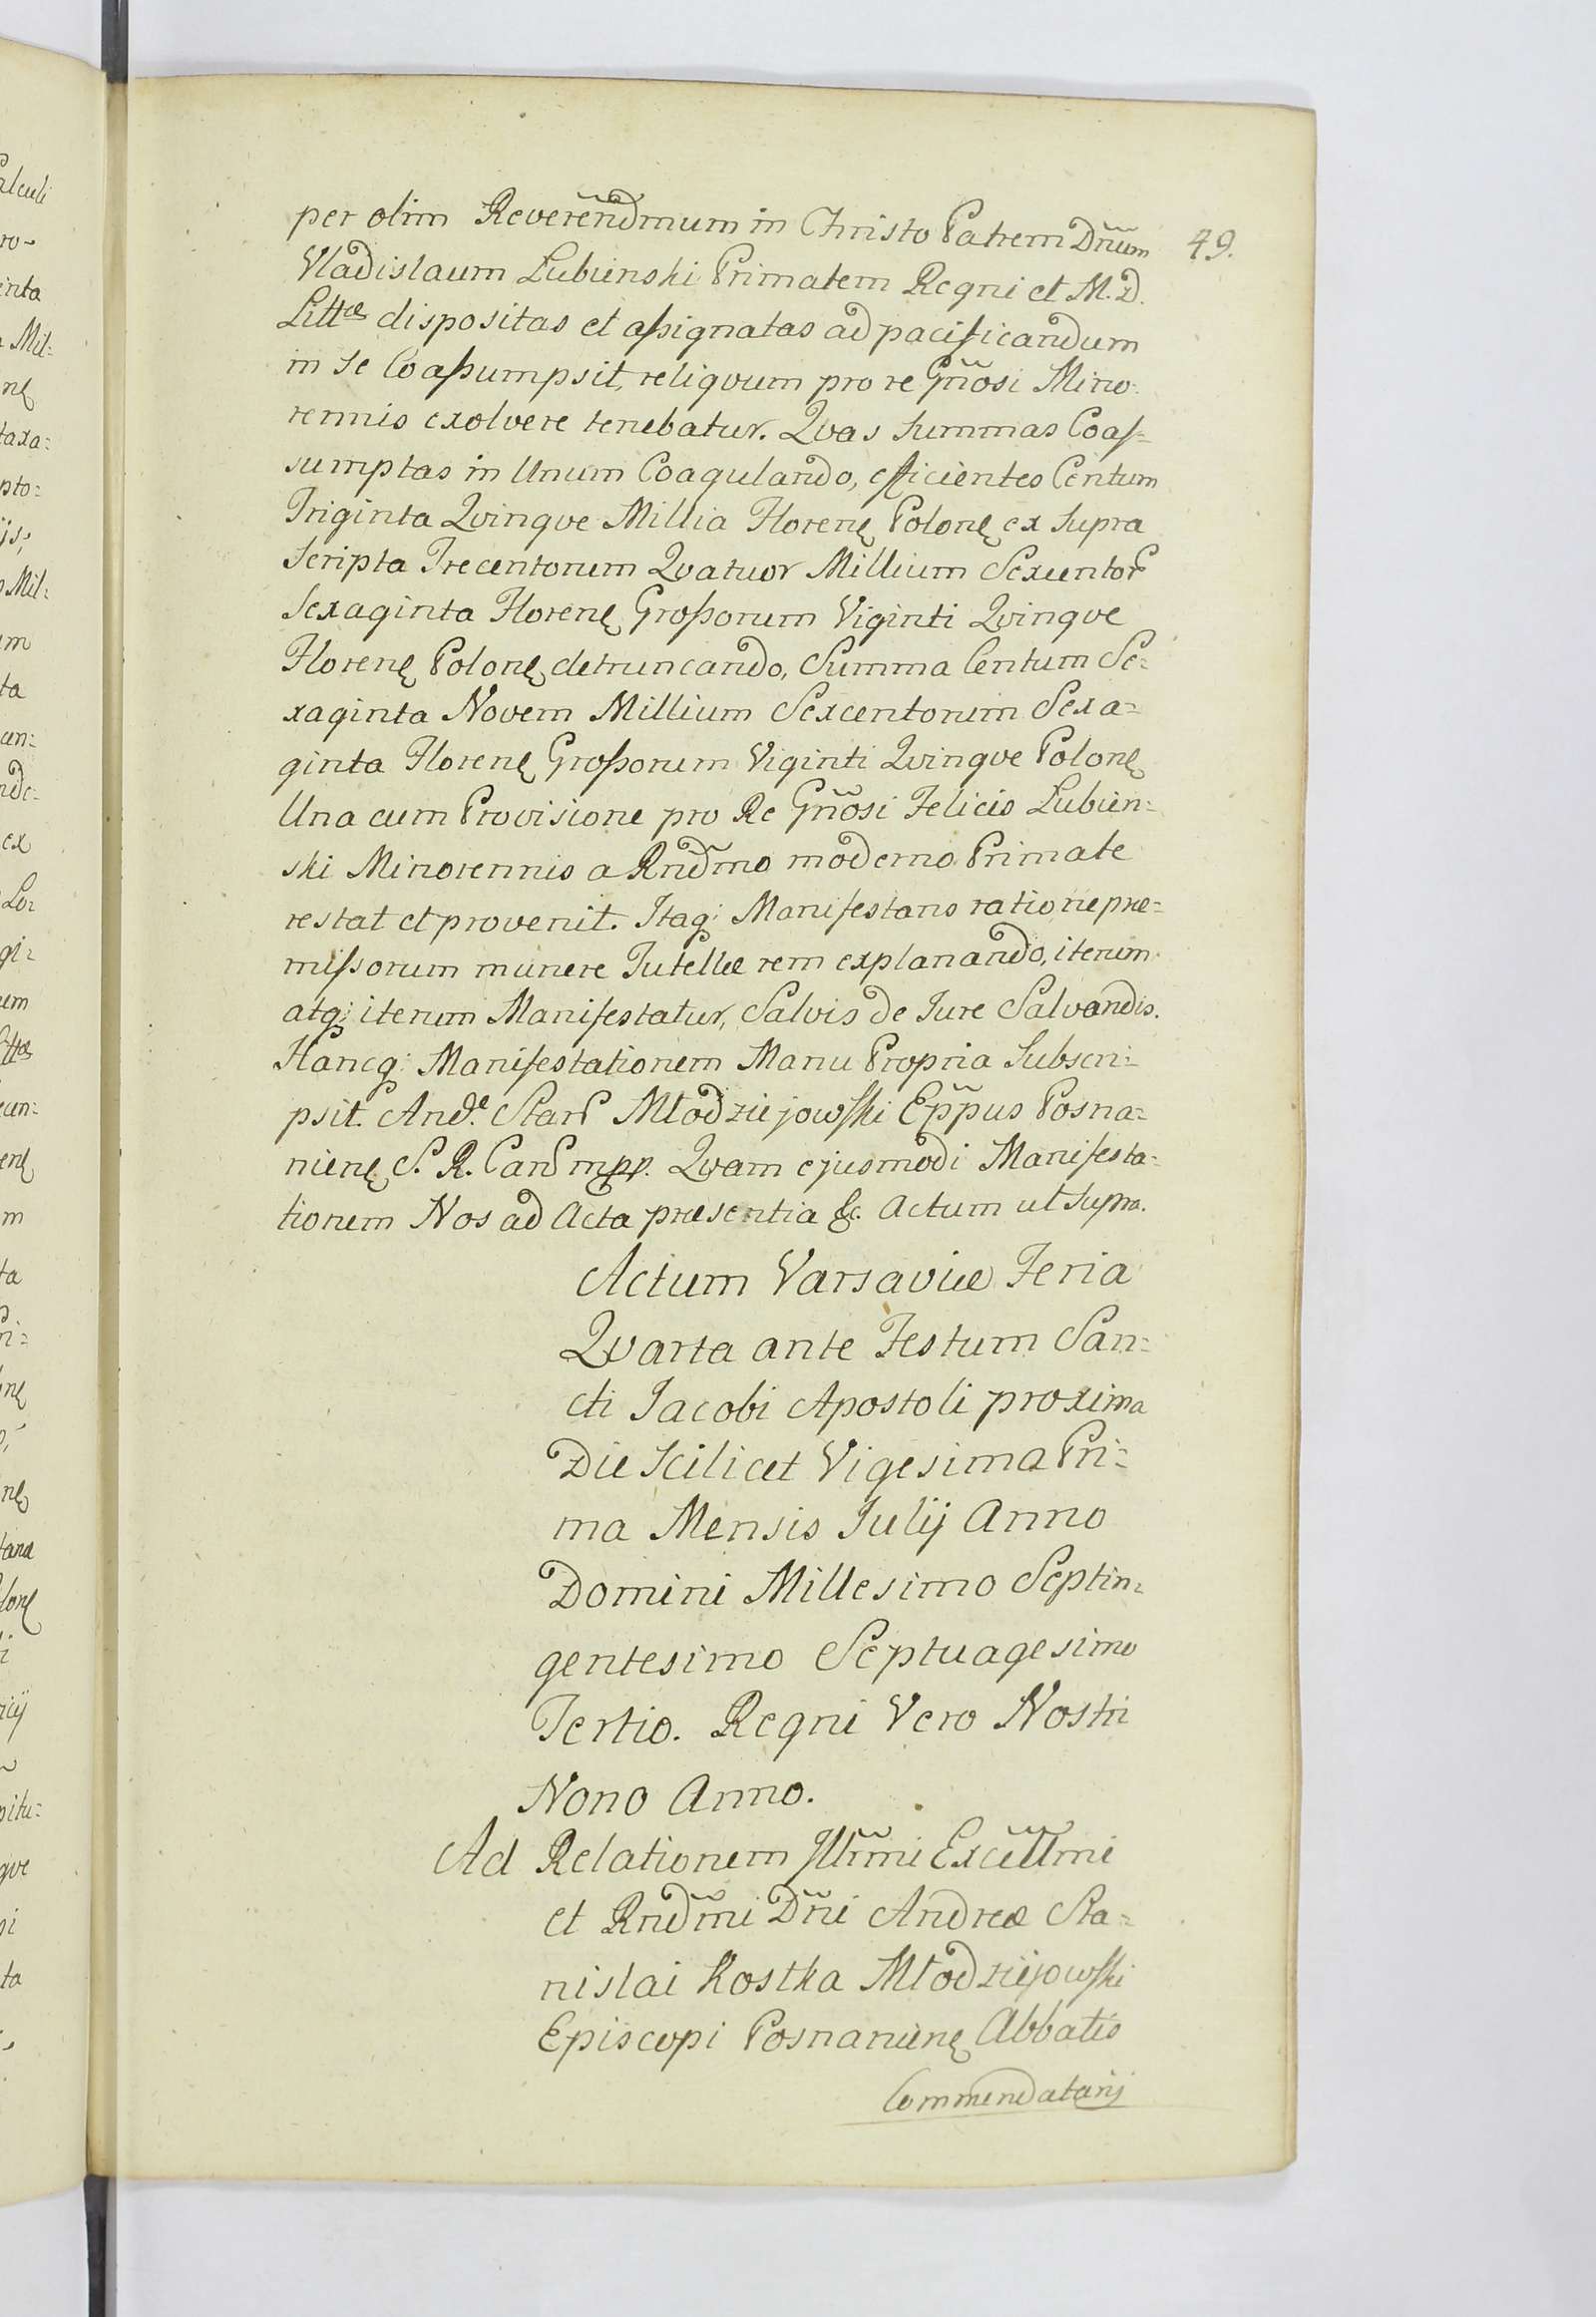 per olim Reverendmum in Christo Patrem Dnum 49.
Vladislaum Lubienski Primatem Regni et M. D.
Littæ dispositas et aſsignatas ad pacificandum
in se Coaſsumpsit, reliqvum pro re Gnosi Mino:
rennis exolvere tenebatur. Qvas Summas Coaſ=
sumptas in Unum Coagulando, efficientes Centum
Triginta Qvinqve Millia Florenę Polonę ex Supra
Scripta Trecentorum Qvatuor Millium Sexcentor
Sexaginta Florenę Groſsorum Viginti Qvinqve
Florenę Polonę detruncando, Summa Centum Se=
xaginta Novem Millium Sexcentorum Sexa=
ginta Florenę Groſsorum Viginti Qvinqve Polonę
Una cum Provisione pro Re Gnosi Felicis Lubien=
ski Minorennis a Rndmo moderno Primate
restat et provenit. Itaq: Manifestans ratione præ=
miſsorum munere Tutellæ rem explanando, iterum
atq: iterum Manifestatur, Salvis de Jure Salvandis.
Hancq: Manifestationem Manu Propria Subscri=
psit. And.e Stan Młodziejowſki Eppus Posna=
nienę S. R. Can mpp. Qvam ejusmodi Manifesta=
tionem Nos ad Acta præsentia &c. Actum ut Supra.
Actum Varsaviæ Feria
Qvarta ante Festum San=
cti Jacobi Apostoli proxima
Die Scilicet Vigesima Pri=
ma Mensis Julij Anno
Domini Millesimo Septin=
gentesimo Septuagesimo
Tertio. Regni Vero Nostri
Nono Anno.
Ad Relationem Illmi Excellmi
et Rndmi Dni Andreæ Sta=
nislai Kostka Młodziejowſki
Episcopi Posnanienę Abbatis
Commendatarij